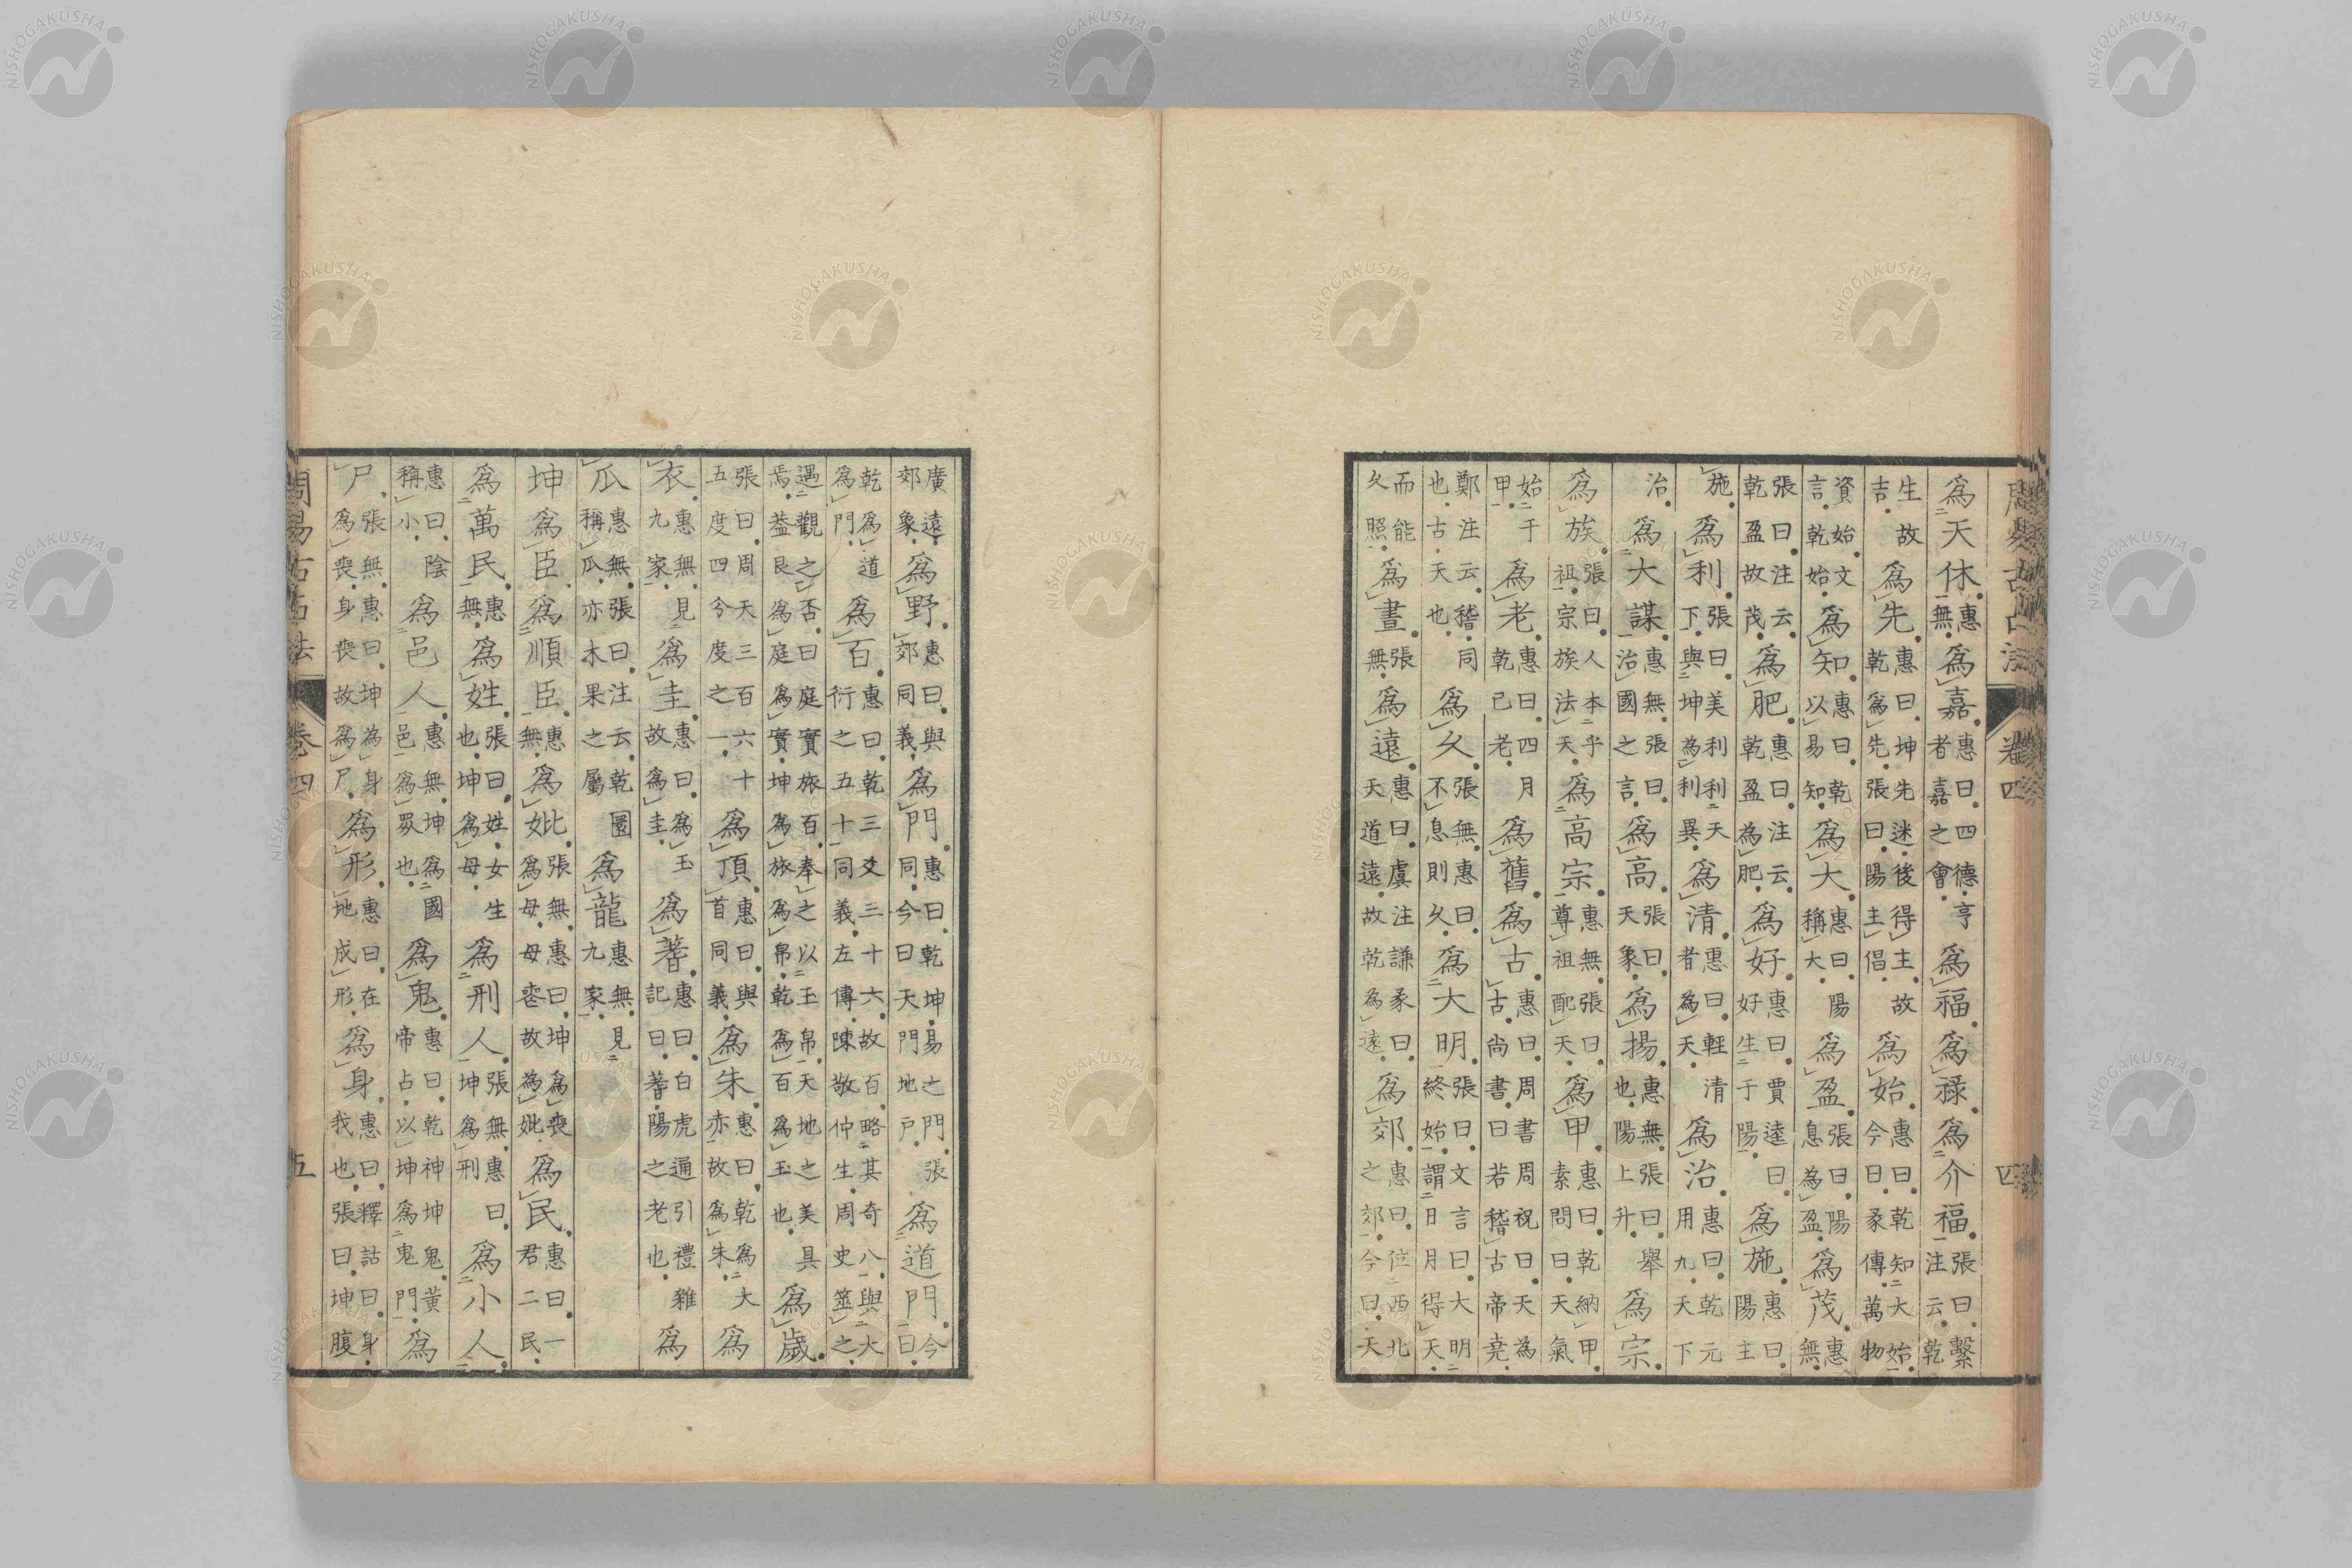 周易古占法 卷四 四
為天休惠無為嘉惠曰四德亨者嘉之會為福為祿為介福張曰繫注云乾
生故吉為先惠曰坤先迷後得主故乾為先張曰陽主倡為始惠曰乾知大始今曰彖傳萬物
資始文言乾始為知惠曰乾以易知為大惠曰陽稱大為盈張曰陽息為盈為茂惠無
張曰注云乾盈故茂為肥惠曰注云乾盈為肥為好惠曰賈逵曰好生于陽為施惠曰陽主
施為利張曰美利利天下與坤為利異為清惠曰輕清者為天為治惠曰乾元用九天下
治為大謀惠無張曰治國之言為高張曰天象為揚惠無張曰舉也陽上升為宗
為族張曰人本乎祖宗族法天為高宗惠無張曰尊祖配天為甲惠曰乾納甲素問曰天氣
始于甲為老惠曰四月乾已老為舊為古惠曰周書周祝曰天為古尚書曰若稽古帝堯
鄭注云稽同也古天也為久張無惠曰不息則久為大明張曰文言曰大明終始謂日月得天
而能久照為晝張無為遠惠曰虞注謙彖曰天道遠故乾為遠為郊惠曰位西北之郊今曰天
廣遠郊象為野惠曰與郊同義為門惠曰乾坤易之門張同今曰天門地戶為道門今曰
乾為道為門為百惠曰乾三爻三十六故百略其奇八與大衍之五十同義左傳陳敬仲生周史筮之
遇觀之否曰庭實旅百奉之以玉帛天地之美具焉葢艮為庭為實坤為旅為帛乾為百為玉也為歲
張曰周天三百六十五度四今度之一為頂惠曰與首同義為朱惠曰乾為大亦故為朱為
衣惠無見九家為圭惠曰為玉故為圭為蓍惠曰白虎通引禮雜記曰蓍陽之老也為
瓜惠無張曰注云乾圜稱瓜亦木果之屬為龍惠無見九家
坤為臣為順臣惠無為妣張無惠曰坤為喪為母母喪故為妣為民惠曰一君二民
為萬民惠無為姓張曰姓女生也坤為母為刑人張無惠曰坤為刑為小人
惠曰陰稱小為邑人惠無坤為國邑為眾也為鬼惠曰乾神坤鬼黃帝占以坤為鬼門為
尸張無惠曰坤為身為喪身喪故為尸為形惠曰在地成形為身惠曰釋詁曰身我也張曰坤腹
周易古占法 卷四 五
NISHOGAKUSHA